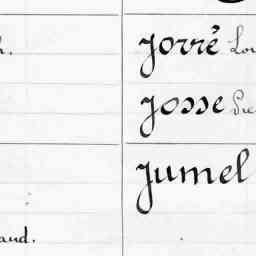 h.
Jorré Lou
Josse Pie
Jumel
and.